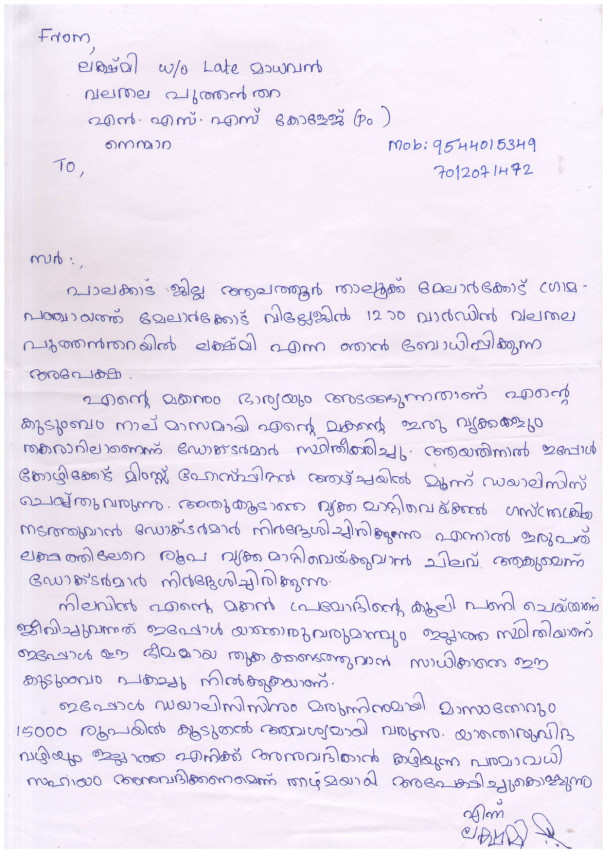 From,
ലക്ഷ്മി w/o Late മാധവൻ
വലതല പുത്തൻ തറ
എൻ. എസ്. എസ് കോളേജ് (Po)
നെന്മാറ Mob: 9544015349
To, 7012071472
സർ:,
പാലക്കാട് ജില്ല ആലത്തൂർ താലൂക്ക് മേലാർക്കോട് ഗ്രാമ-
പഞ്ചായത്ത് മേലാർക്കോട് വില്ലേജിൽ 12 ാo വാർഡിൽ വലതല
പുത്തൻതറയിൽ ലക്ഷ്മി എന്ന ഞാൻ ബോധിപ്പിക്കുന്ന
അപേക്ഷ.
എന്റെ മകനും ഭാര്യയും അടങ്ങുന്നതാണ് എന്റെ
കുടുംബം നാല് മാസമായി എന്റെ മകന്റെ ഇരു വൃക്കകളും
തകരാറിലാണെന്ന് ഡോക്ടർമാർ സ്ഥിതീകരിച്ചു. ആയതിനാൽ ഇപ്പോൾ
കോഴിക്കോട് മിംസ്സ് ഹോസ്പിറ്റൽ ആഴ്ച്ചയിൽ മൂന്ന് ഡയാലിസിസ്
ചെയ്തുവരുന്നു. അതുകൂടാതെ വൃക്ക മാറ്റിവെയ്ക്കൽ ശസ്ത്രക്രിയ
നടത്തുവാൻ ഡോക്ടർമാർ നിർദ്ദേശിച്ചിരിക്കുന്നു എന്നാൽ ഇരുപത്
ലക്ഷത്തിലേറെ രൂപ വൃക്ക മാറ്റിവെയ്ക്കുവാൻ ചിലവ് ആകുമെന്ന്
ഡോക്ടർമാർ നിർദ്ദേശിച്ചിരിക്കുന്നു.
നിലവിൽ എന്റെ മകൻ പ്രമോദിന്റെ കൂലി പണി ചെയ്താണ്
ജീവിച്ചുവന്നത് ഇപ്പോൾ യാതൊരുവരുമാനവും ഇല്ലാത്ത സ്ഥിതിയാണ്
ഇപ്പോൾ ഈ ഭീമമായ തുക കണ്ടെത്തുവാൻ സാധിക്കാതെ ഈ
കുടുംബം പകച്ചു നിൽക്കുകയാണ്.
ഇപ്പോൾ ഡയാലിസിസിനും മരുന്നിനുമായി മാസംതോറും
15000 രൂപയിൽ കൂടുതൽ ആവശ്യമായി വരുന്നു. യാതൊരുവിധ
വഴിയും ഇല്ലാത്ത എനിക്ക് അനുവദിക്കാൻ കഴിയുന്ന പരമാവധി
സഹായം അനുവദിക്കണമെന്ന് താഴ്മയായി അപേക്ഷിച്ചുകൊള്ളുന്നു
എന്ന്
ലക്ഷ്മി